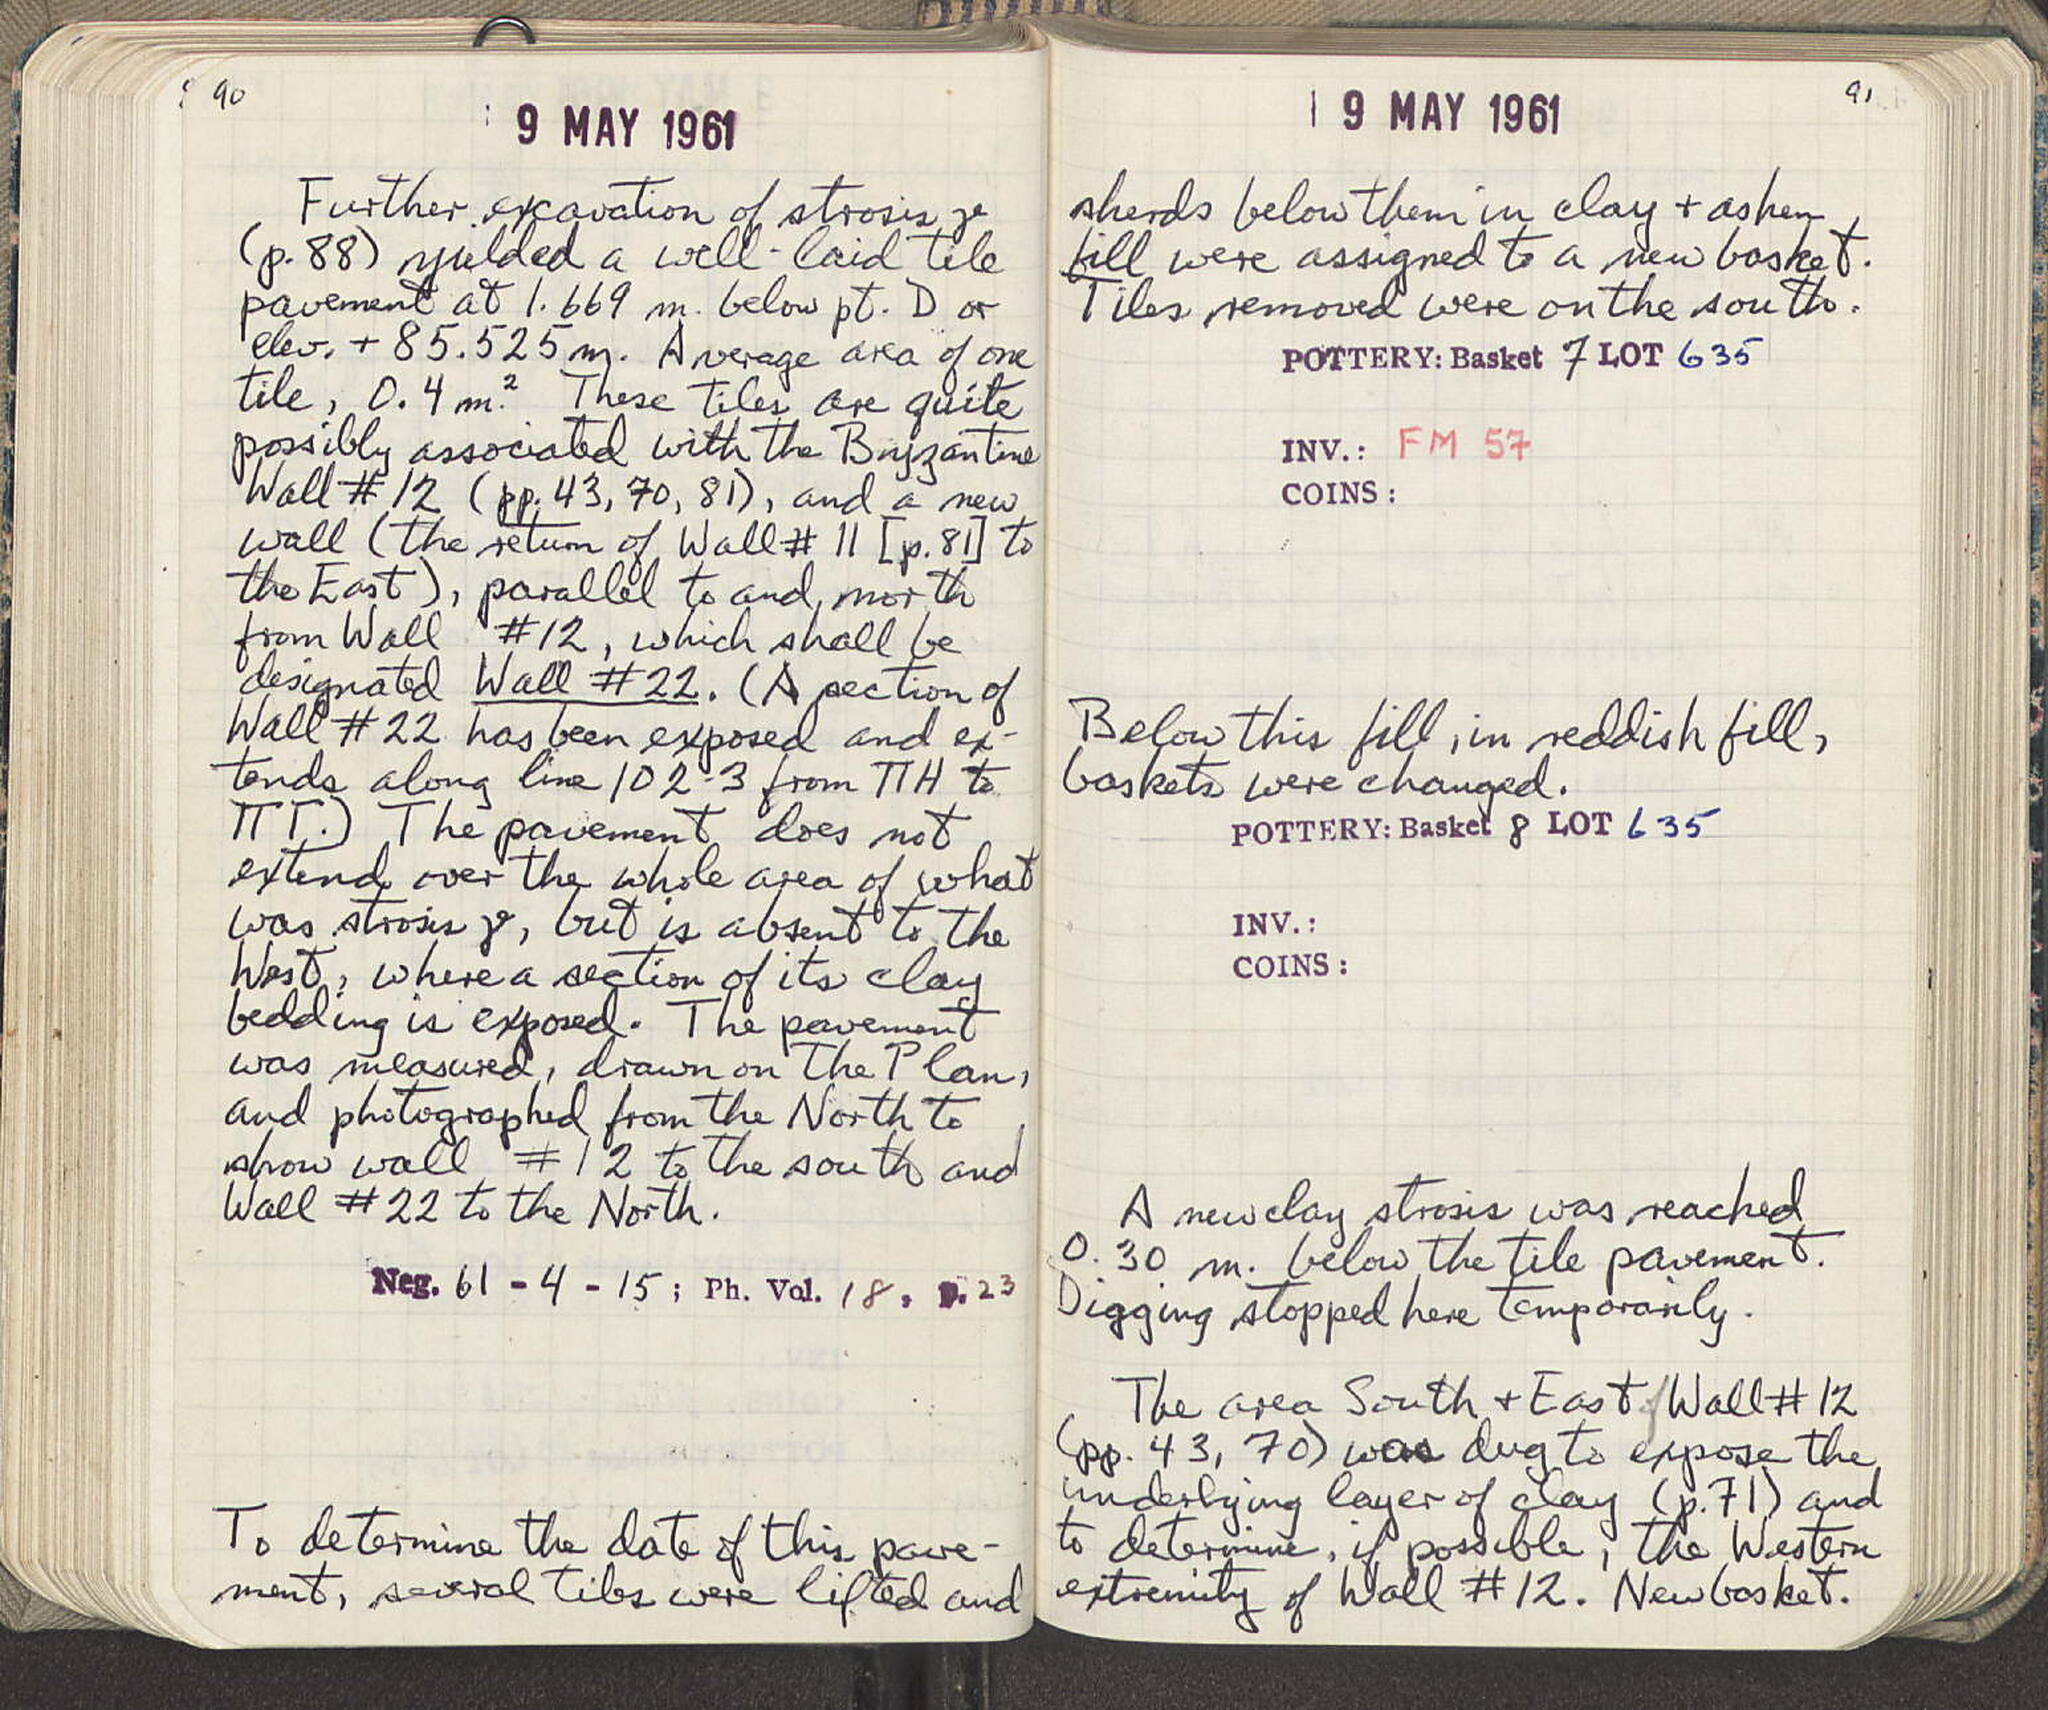 90
9 MAY 1961
Further excavation of strosis γ
(p. 88) yielded a well-laid tile
pavement at 1.669 m. below pt. D or
elev. + 85.525 m. Average area of one
tile, 0.4 m.² These tiles are quite
possibly associated with the Byzantine
Wall # 12 (pp. 43, 70, 81), and a new
wall (the return of Wall # 11 [p. 81] to
the East), parallel to and north
from Wall #12, which shall be
designated Wall #22. (A section of
Wall # 22 has been exposed and ex-
tends along line 102-3 from ΠH to
ΠΓ.) The pavement does not
extend over the whole area of what
was strosis γ, but is absent to the
West, where a section of its clay
bedding is exposed. The pavement
was measured, drawn on the Plan,
and photographed from the North to
show wall #12 to the south and
Wall #22 to the North.
Neg. 61 - 4 - 15; Ph. Vol. 18, p. 23
To determine the date of this pave-
ment, several tiles were lifted and
91
9 MAY 1961
sherds below them in clay + ashen
fill were assigned to a new basket.
Tiles removed were on the south.
POTTERY: Basket 7 LOT 635
INV.: FM 57
COINS:
Below this fill, in reddish fill,
baskets were changed.
POTTERY: Basket 8 LOT 635
INV.:
COINS:
A new clay strosis was reached
0.30 m. below the tile pavement.
Digging stopped here temporarily.
The area South + East of Wall # 12
(pp. 43, 70) was dug to expose the
underlying layer of clay (p. 71) and
to determine, if possible, the Western
extremity of Wall #12. New basket.